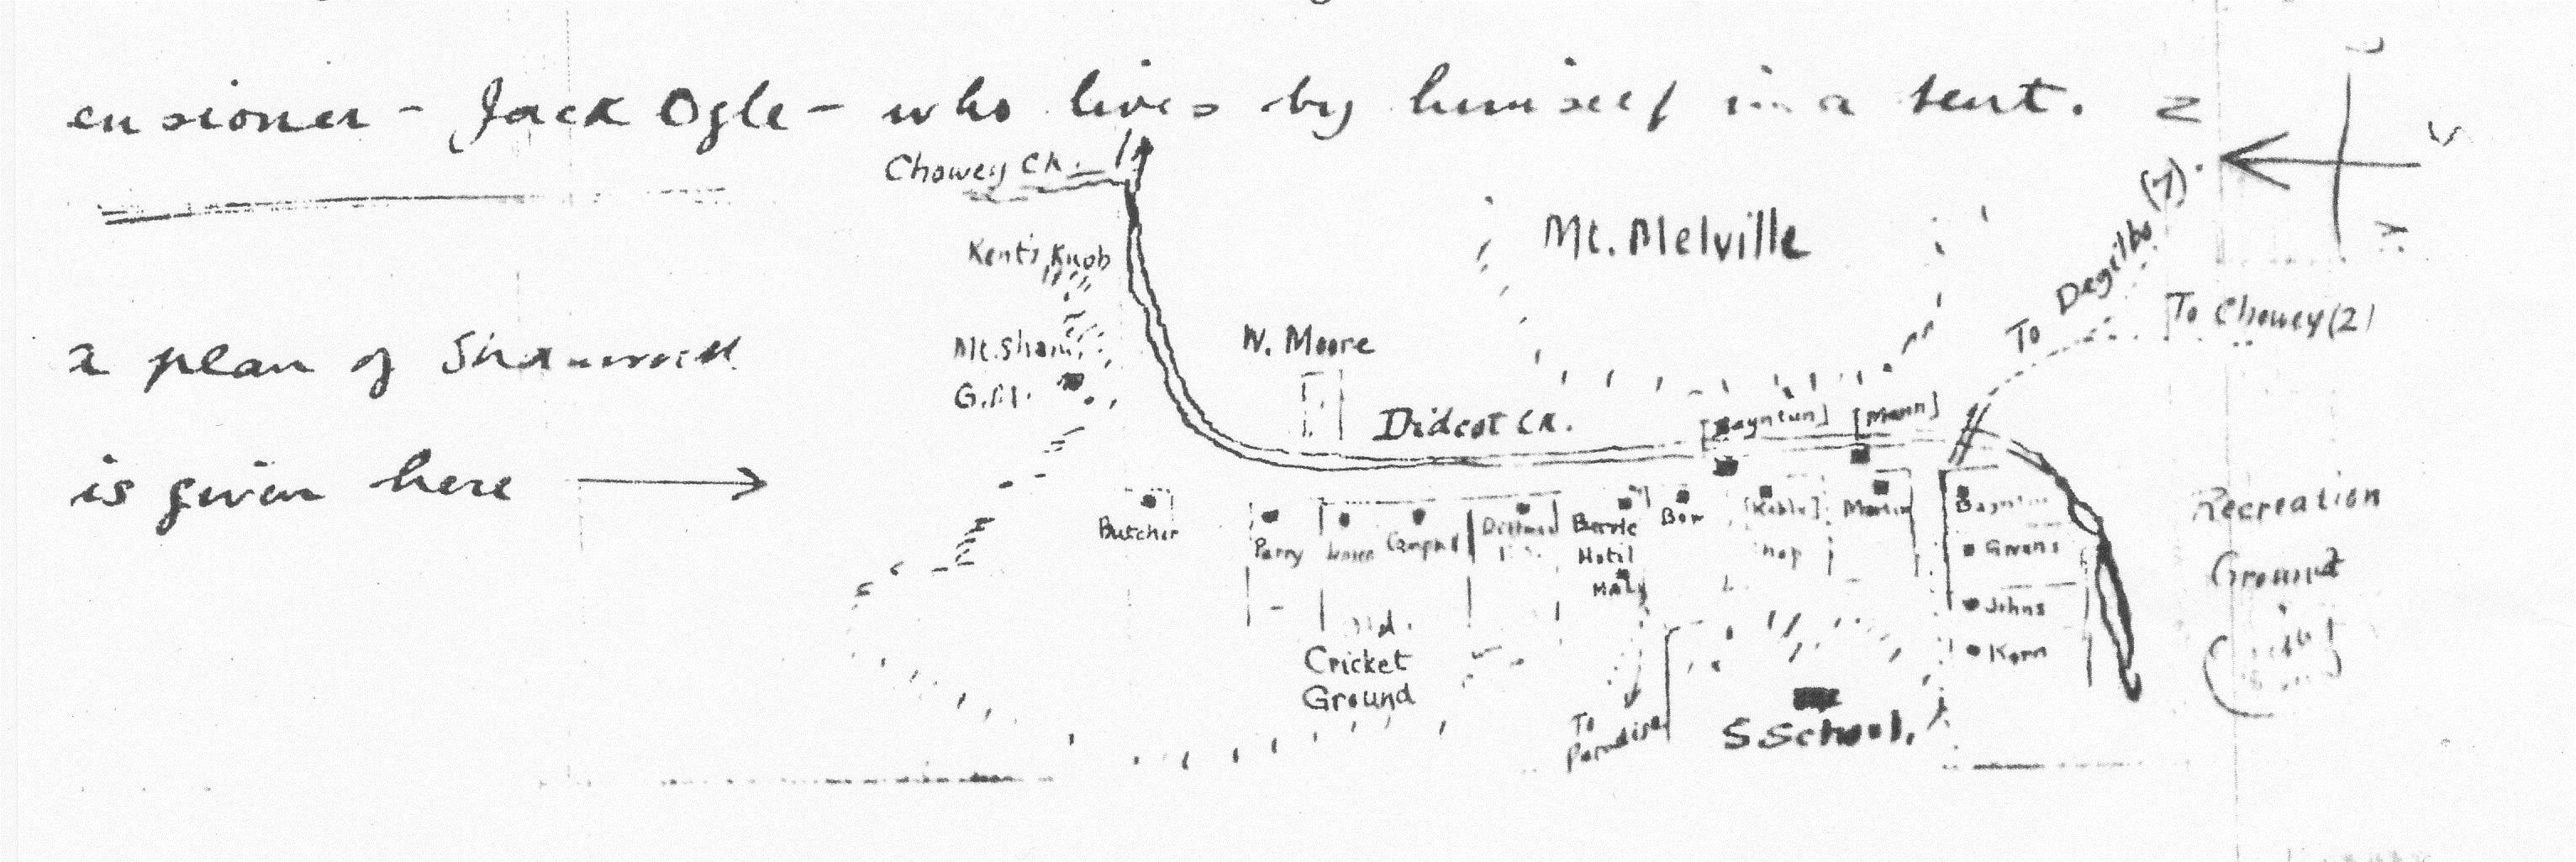 ensioner - Jack Ogle - who lives by himself in a tent.
N
S
Chowey Ck.
Kent's Knob
Mt. Sham
Mt. Melville
To Degilbo (7).
To Chowey (2)
W. Moore
a plan of Shamrock
is given here
Didcot Ck.
[Bayntun] [Mann]
Butcher
Parry
Berrie
Hotel
Martin
Givens
Johns
Korn
Cricket
Ground
To
Paradise
S School.
Recreation
Ground